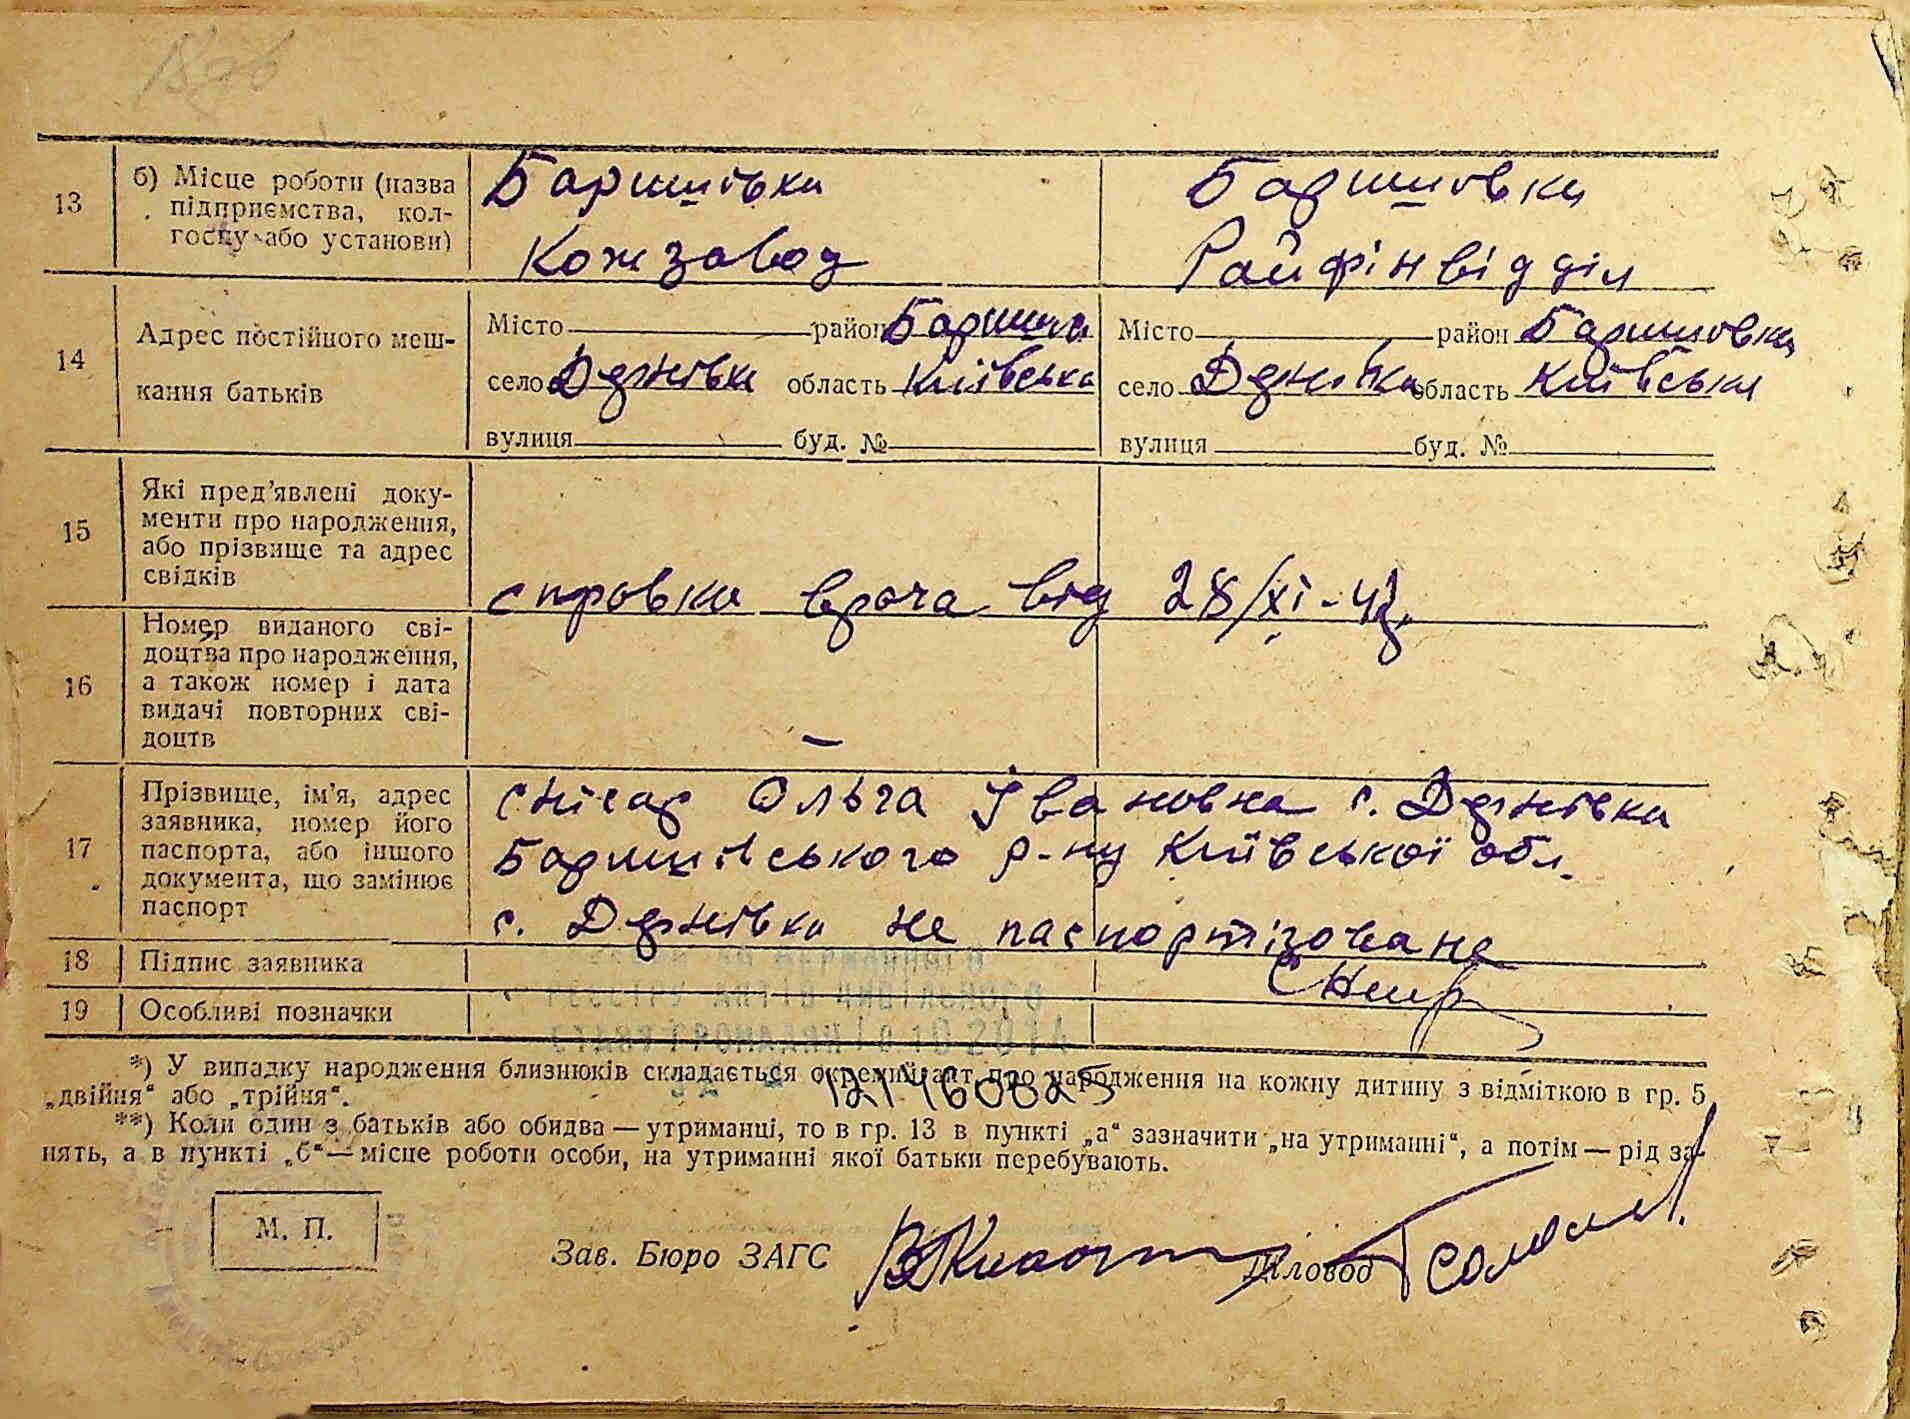 13
б) Місце роботи (назва
підприємства, кол-
госпу або установи)
Баришівка
Кожзавод
Баришовка
Райфінвідділ
14
Адрес постійного меш-
кання батьків
Місто район Баришів
село Дернівка область Київська
вулиця буд. №
Місто район Баришовка
село Дернівка область Київська
вулиця буд. №
15
Які пред'явлені доку-
менти про народження,
або прізвище та адрес
свідків
справка врача від 28/XI-42.
16
Номер виданого сві-
доцтва про народження,
а також номер і дата
видачі повторних сві-
доцтв
—
17
Прізвище, ім'я, адрес
заявника, номер його
паспорта, або іншого
документа, що замінює
паспорт
Снісар Ольга Івановна с. Дернівка
Баришівського р-ну Київської обл.
с. Дернівка не паспортізована
18
Підпис заявника
19
Особливі позначки
ДО ДЕРЖАВНОГО
РЕЄСТРУ АКТІВ ЦИВІЛЬНОГО
СТАНУ ГРОМАДЯН 10 2014
*) У випадку народження близнюків складається окремий акт про народження на кожну дитину з відміткою в гр. 5
„двійня“ або „трійня“.
**) Коли один з батьків або обидва — утриманці, то в гр. 13 в пункті „а“ зазначити „на утриманні“, а потім — рід за-
нять, а в пункті „б“ — місце роботи особи, на утриманні якої батьки перебувають.
М. П.
Зав. Бюро ЗАГС
Діловод